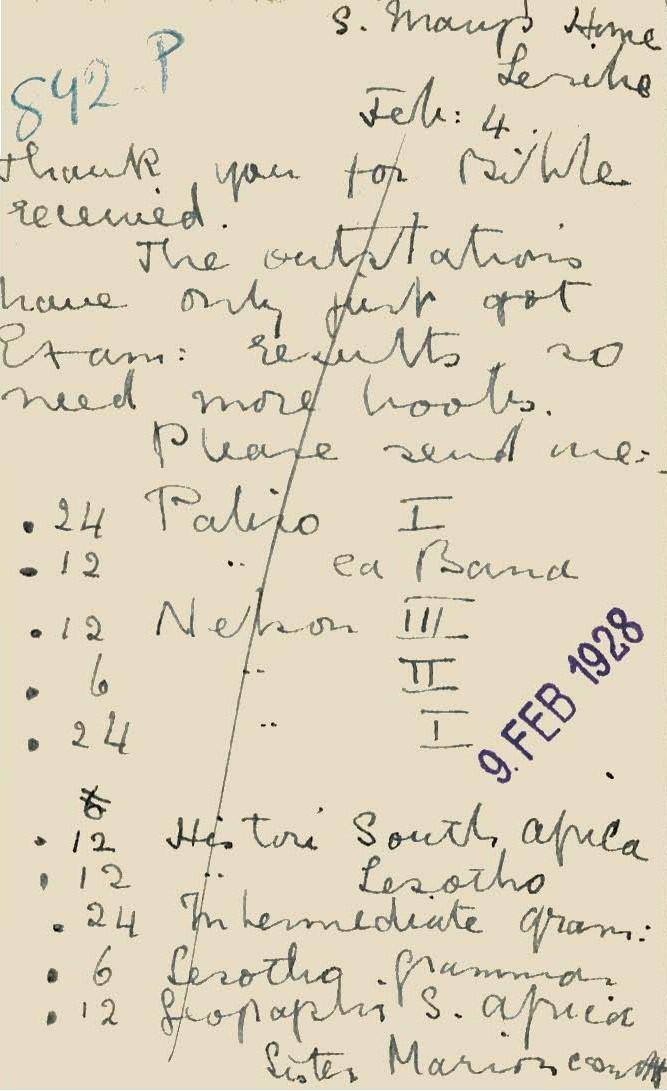 S. Mary's Home
Leribe
842 P
Feb: 4.
Thank you for Bible
received.
The outstations
have only just got
Exam: results, so
need more books.
Please send me:-
24 Paliso I
12 " ea Bana
12 Nelson III
6 " II
24 " I
9. FEB 1928
6
12 Histori South Africa
12 " Lesotho
24 Intermediate Gram:
6 Lesotho grammar
12 Geographi S. Africa
Sister Marion